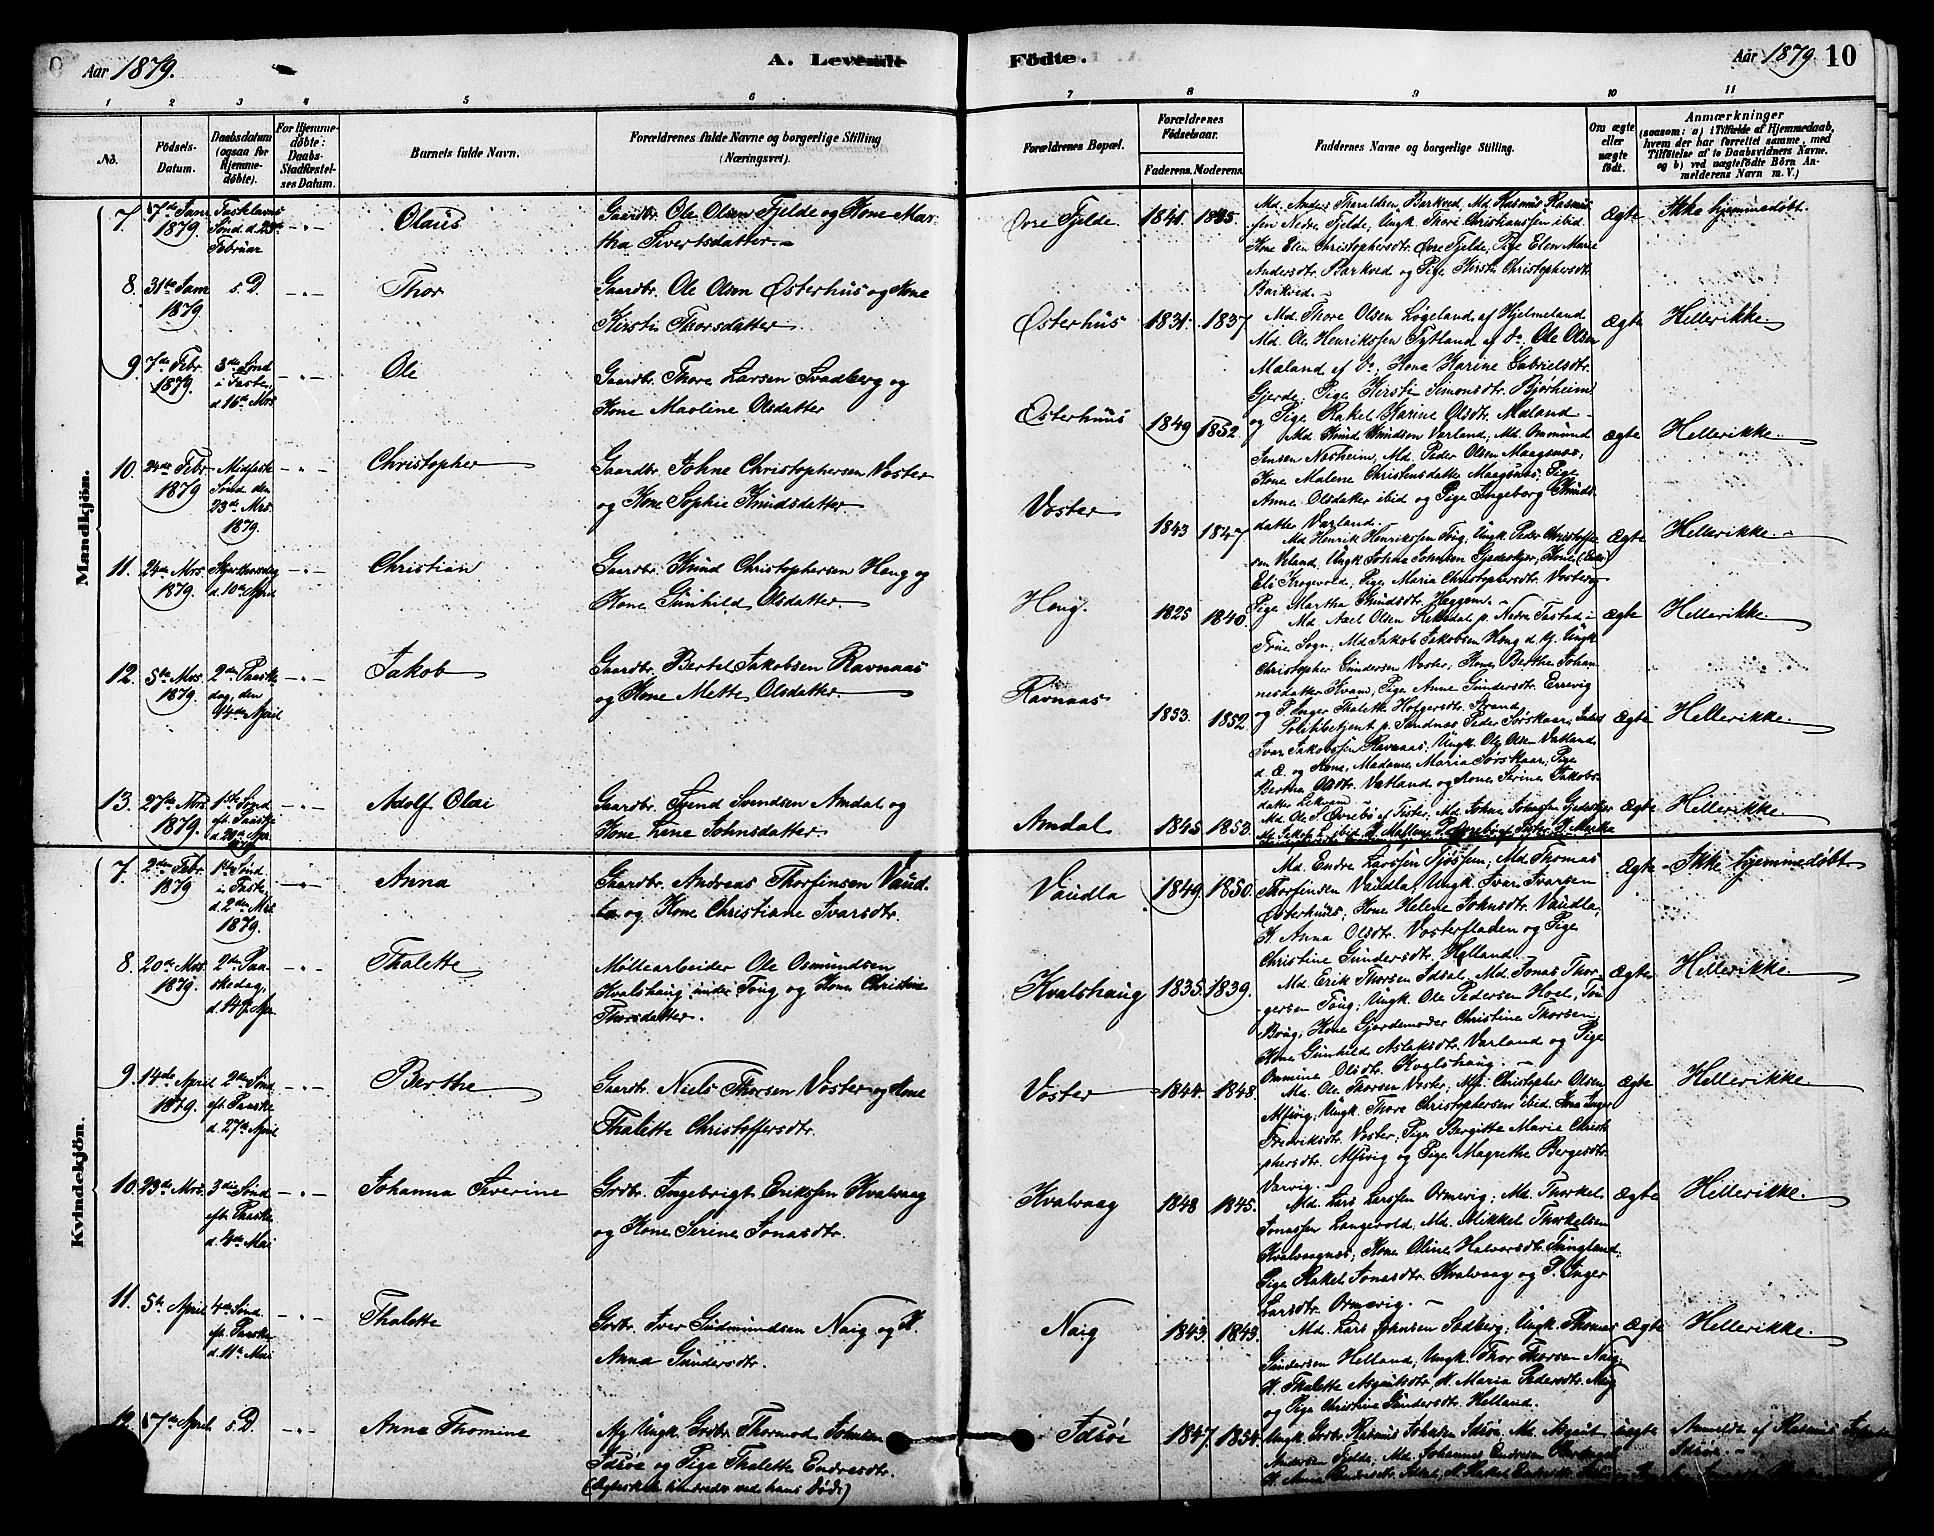 Aar 1879.
A. Levende
Födte.
Aar 1879
10
1 2 3 4 5 6 7 8 9 10 11
No.
Födsels-Datum.
Daabsdatum (ogsaa for Hjemme-döbte).
For Hjemme-döbte: Daabs-Stadfæstel-ses Datum.
Barnets fulde Navn.
Forældrenes fulde Navne og borgerlige Stilling (Næringsvei).
Forældrenes Bopæl.
Forældrenes Födselsaar.
Faderens. Moderens.
Faddernes Navne og borgerlige Stilling.
Om ægte eller uægte födt.
Anmærkninger
(saasom: a) i Tilfælde af Hjemmedaab, hvem der har forrettet samme, med Tilföielse af to Daabsvidners Navne, og b) ved uægtefödte Börn An-melderens Navn m. V.)
Mandkjön.
7. 1879. Fastelavns Sönd. d. 23de Februar
Olaus
Gaardbr. Ole Olsen Fjelde og Kone Mar-
tha Sivertsdatter.
Övre Fjelde. 1845.
Md. Anders Tharaldsen Barkved, Md. Rasmus Rasmus-
sen Nedre Fjelde, Ungk. Thore Christianssen ibid.
Kone Elen Christophersdt. Övre Fjelde, Pige Elen Marie
Andersdt. Barkved og Pige Kirsti Christophersdt.
Barkved.
Ægte Ikke hjemmedöbt.
8. 31te Janr 1879. s. D.
Thor
Gaardbr. Ole Olsen Østerhus og Kone
Kirsti Thorsdatter.
Østerhus 1831. 1837
Md. Thore Olsen Lögeland af Hjelmeland
Md. Ole Henrikssen Tytland af do, Ole Olsen
Maland af do; Kone Karine Gabrielsdtr.
Gjerde; Pige Kirsti Simonsdtr. Bjørheim
og Pige Rakel Karine Olsdtr. Maland
Ægte Hellerikke.
9. 7de Febr. 1879. 3die Sönd. i Faste, d. 16de Mrs
Ole
Gaardbr. Thore Larsen Svadberg og
Kone Maoline Olsdatter
Østerhuus 1849 1852
Md. Knud Knudsen Varland, Md. Ommund
Jensen Nasheim, Md. Peder Olsen Maagenæs,
Kone Malene Christensdatter Maagenæs; Pige
Anne Olsdatter ibid og Pige Ingeborg Knuds-
datter Varland.
Ægte Hellerikke.
10. 24de Febr 1879. Midfaste Sönd. den 23de Mrs. 1879.
Christopher
Gaardbr. Johne Christophersen Voster
og Kone Sophie Knudsdatter
Voster 1843 1847
Md. Henrik Henrikssen Toug; Ungk. Peder Christoffer-
sen Voland, Ungk. Johne Johnsen Gjedrekjær,
Eli Krogevold, Pige Maria Christophersdtr. Voster og
Pige Martha Knudsdtr. Heggem.
Ægte Hellerikke.
11. 24de Mrs. 1879. Skjærthorsdag d. 10de April
Christian
Gaardbr. Knud Christophersen Houg og
Kone Gunhild Olsdatter.
Houg. 1825 1840.
Md. Axel Olsen p. Nedre Tastad i
Frue Sogn, Md. Jakob Jakobsen Houg d. kj. Ungk.
Christopher Gundersen Voster, Kone Berthe Johan-
nesdatter Kvam, Pige Anne Gundersdtr. Errevig
og P. Inger Thalette Holgersdtr. Strand.
Ægte Hellerikke.
12. 5te Mrs. 1879. 2den Paaske-dag, den 14de April
Jakob
Gaardbr. Bertel Jakobsen Ravnaas
og Kone Mette Olsdatter.
Ravnaas 1853. 1852.
Politibetjent p. Sandnæs Peder Sørskaar,
Ivar Jakobssen Ravnaas, Ungk. Ole Olsen Vatland
d. Æ. og Kone, Madame Maria Sørskaar, Pige
Bertha Olsdtr. Vatland og Kone Serine Jakobs-
datter
Ægte Hellerikke.
13. 27de Mrs 1879. 1ste Sönd. eft. Paaske d. 20de Apr.
Adolf Olai
Gaardbr. Svend Svendsen Amdal og
Kone Line Johnsdatter.
Amdal 1845. 1853.
Ægte Hellerikke.
Kvindekjön.
7. 2den Febr. 1879. 1ste Sönd. i Faste, d. 2den Mrs. 1879.
Anna
Gaardbr. Andreas Thorfinsen Vaud-
la og Kone Christiane Ivarsdtr.
Vaudla 1849. 1850.
Md. Endre Larssen Tjössem; Md. Thomas
Thorfinsen Vaudla, Ungk. Ivar Ivarsen
Østerhuus; Kone Helene Johnsdtr. Vaudla,
K. Anna Olsdtr. Vosterfladen og Pige
Christine Gundersdtr. Helland.
Ægte Ikke hjemmedöbt
8. 20de Mrs. 1879. 2den Paa-skedag, d. 14. Apr.
Thalette
Möllearbeider Ole Osmundsen
Kvalshaug under Toug og Kone Christine
Thorsdatter.
Kvalshaug 1835. 1839.
Md. Erik Thorsen Idsal, Md. Jonas Thor-
gersen Toug, Ungk. Ole Pedersen Hoel,
Kone Gjordemoder Christine Thorsen,
Kone Gunhilde Aslaksdtr. Varland og Pige
Ommine Olsdtr. Kvalshaug.
Ægte Hellerikke.
9. 14de April 1879. 2den Sönd. eft. Paaske d. 27de April
Berthe
Gaardbr. Niels Thorsen Voster og Kone
Thalette Christoffersdtr.
Voster 1844. 1848.
Md. Ole Thorsen Voster, Md. Christopher Olsen
Alsvig, Ungk. Thore Christophersen ibid. Kone Inger
Fredriksdtr. Voster, Pige Bergitte Marie Christo-
phersdtr. Alsvig og Pige Magrethe Bergesdtr.
Varvig.
Ægte Hellerikke.
10. 23de Mrs. 3die Sönd. eft. Paaske d. 4de Mai
Johanna Severine
Grdbr. Ingebrigt Erikssen Kvalvaag
og Kone Serine Jonasdtr.
Kvalvaag 1848 1845.
Md. Lars Larssen Ormevig; Md. Thorkel
Jonassen Langevold, Md. Mikkel Thorkelsen
Kvalvaagnæs; Kone Oline Halvorsdtr. Tungland,
Pige Rakel Jonasdtr. Kvalvaag og P. Inger
Larsdtr. Ormevig.
Ægte Hellerikke.
11. 5te April 4de Sönd. eft. Paaske d. 11te Mai
Thalette
Grdbr. Iver Gudmundsen Naig og K.
Anna Gundersdtr.
Naig 1843. 1843.
Md. Lars Johnsen Sodberg; Ungk. Thomas
Gundersen Helland, Ungk. Thor Thorsen Naig,
K. Thalette Asgautsdtr., K. Maria Pedersdtr. Naig
og Pige Christine Gundersdtr. Helland.
Ægte Hellerikke.
12. April s. D.
Anna Thomine
Af Ungk. Grdbr. Thormod Johnsen
Idsøe og Pige Thalette Endresdtr.
(Ægteskab hindredes ved hans Död.)
Idsøe 1847. 1854.
Ungk. Grdbr. Rasmus Johnsen Idsøe, Md. Asgaut
Andersen Fjelde, Md. Johannes Endresen
uægte Anmeldt af Rasmus
Idsøe.